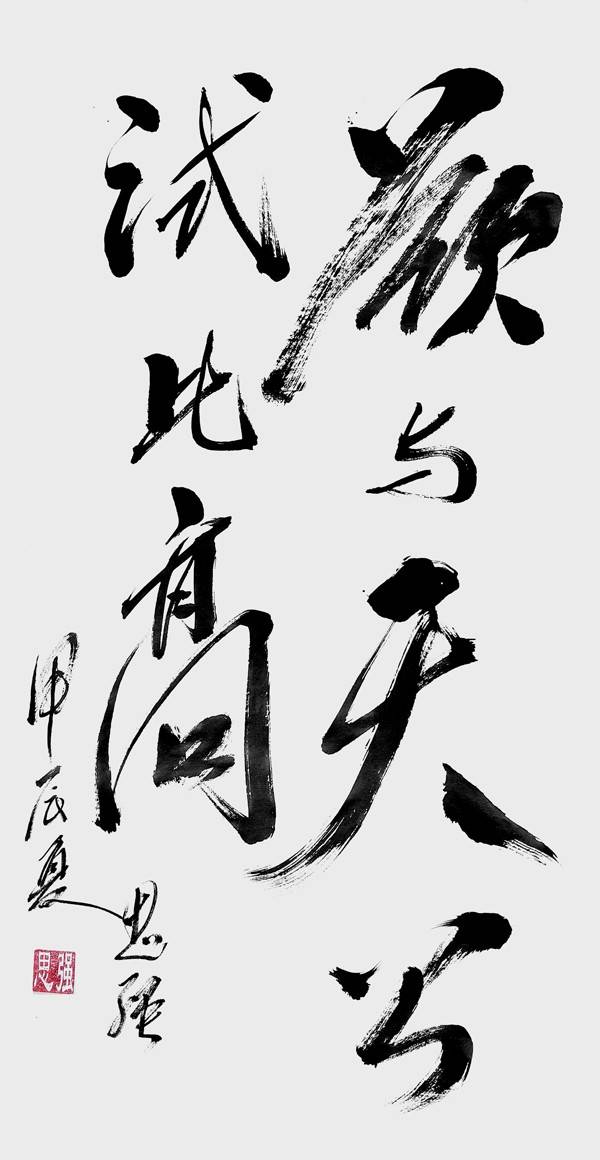 欲与天公
试比高
甲辰夏
思强
思强